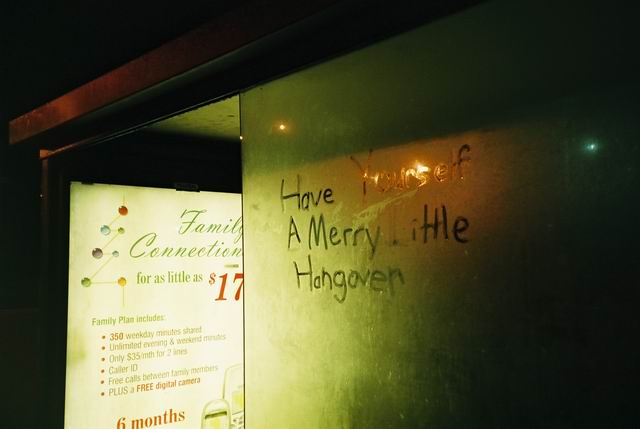 Family
Connection
for as little as $17
Family Plan includes:
• 350 weekday minutes shared
• Unlimited evening & weekend minutes
• Only $35/mth for 2 lines
• Caller ID
• Free calls between family members
• PLUS a FREE digital camera
6 months
Have Yourself
A Merry Little
Hangover